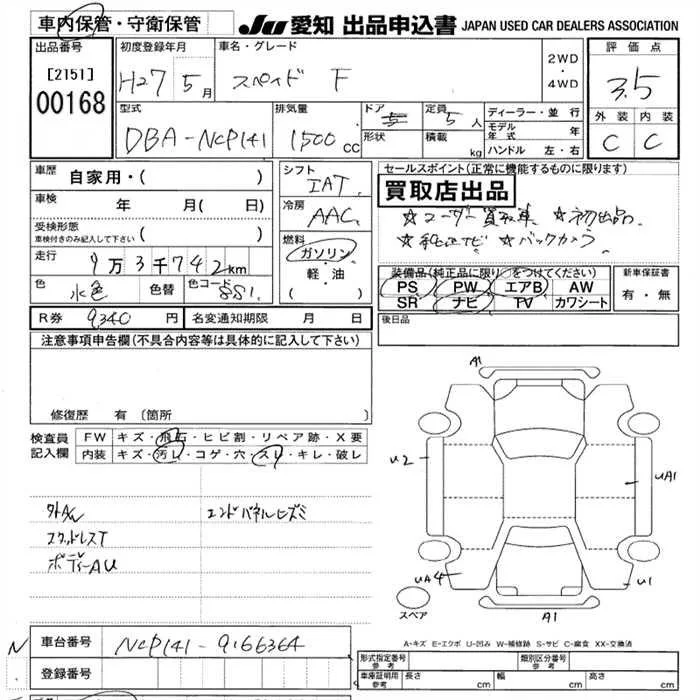 車内保管・守衛保管
JU 愛知 出品申込書 JAPAN USED CAR DEALERS ASSOCIATION
出品番号
[2151]
00168
初度登録年月
H27 5月
車名・グレード
スペイド F
2WD
・
4WD
評価点
3.5
外装 内装
C C
型式
DBA-NCP141
排気量
1500cc
ドア 5
形状
定員 5人
積載 kg
ディーラー・並行
モデル年式 年
ハンドル 左・右
車歴 自家用・( )
車検 年 月( 日)
受検形態
車検付きのみ記入して下さい ( )
走行 9万3千742km
色 水色 色替 色コード 8S1
シフト
IAT
冷房
AAC
燃料
ガソリン
・
軽・油
( )
セールスポイント(正常に機能するものに限ります)
買取店出品
☆ユーザー買取車 ☆初出品
☆純正ナビ ☆バックカメラ
装備品(純正品に限り○をつけてください)
PS PW エアB AW
SR ナビ TV カワシート
新車保証書
有・無
R券 9,340円 名変通知期限 月 日
後日品
注意事項申告欄(不具合内容等は具体的に記入して下さい)
修復歴 有 (箇所 )
検査員記入欄
FW キズ・飛石・ヒビ割・リペア跡・X要
内装 キズ・汚レ・コゲ・穴・スレ・キレ・破レ
外A/W エンドパネルヒズミ
スタッドレスT
ボディーAU
A1
U2
UA1
UA4
U1
スペア
A1
A-キズ E-エクボ U-凹み W-補修跡 S-サビ C-腐食 XX-交換済
N
車台番号 NCP141-9166364
登録番号
形式指定番号 参考
類別区分番号 参考
車庫証明用 参考 長さ cm 幅 cm 高さ cm